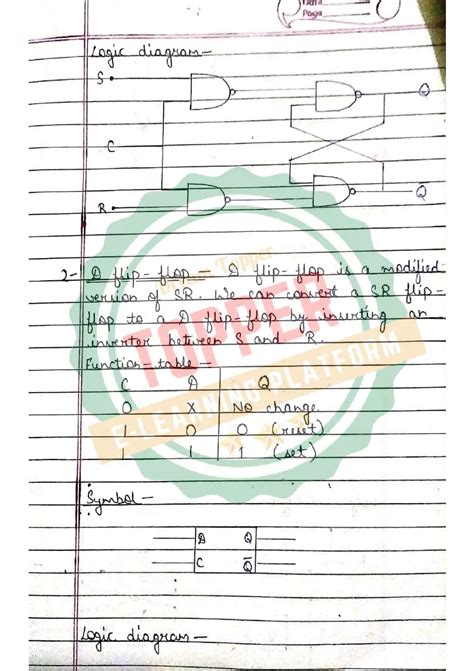 Date
Page
Logic diagram -
S
Q
C
R
Q̅
2- D flip-flop - D flip-flop is a modified
version of SR. We can convert a SR flip-
flop to a D flip-flop by inserting an
inverter between S and R.
Function table -
C D Q
0 X No change.
1 0 0 (reset)
1 1 1 (set)
Symbol -
D Q
C Q̅
Logic diagram -
Topper
TOPPER
E-LEARNING PLATFORM